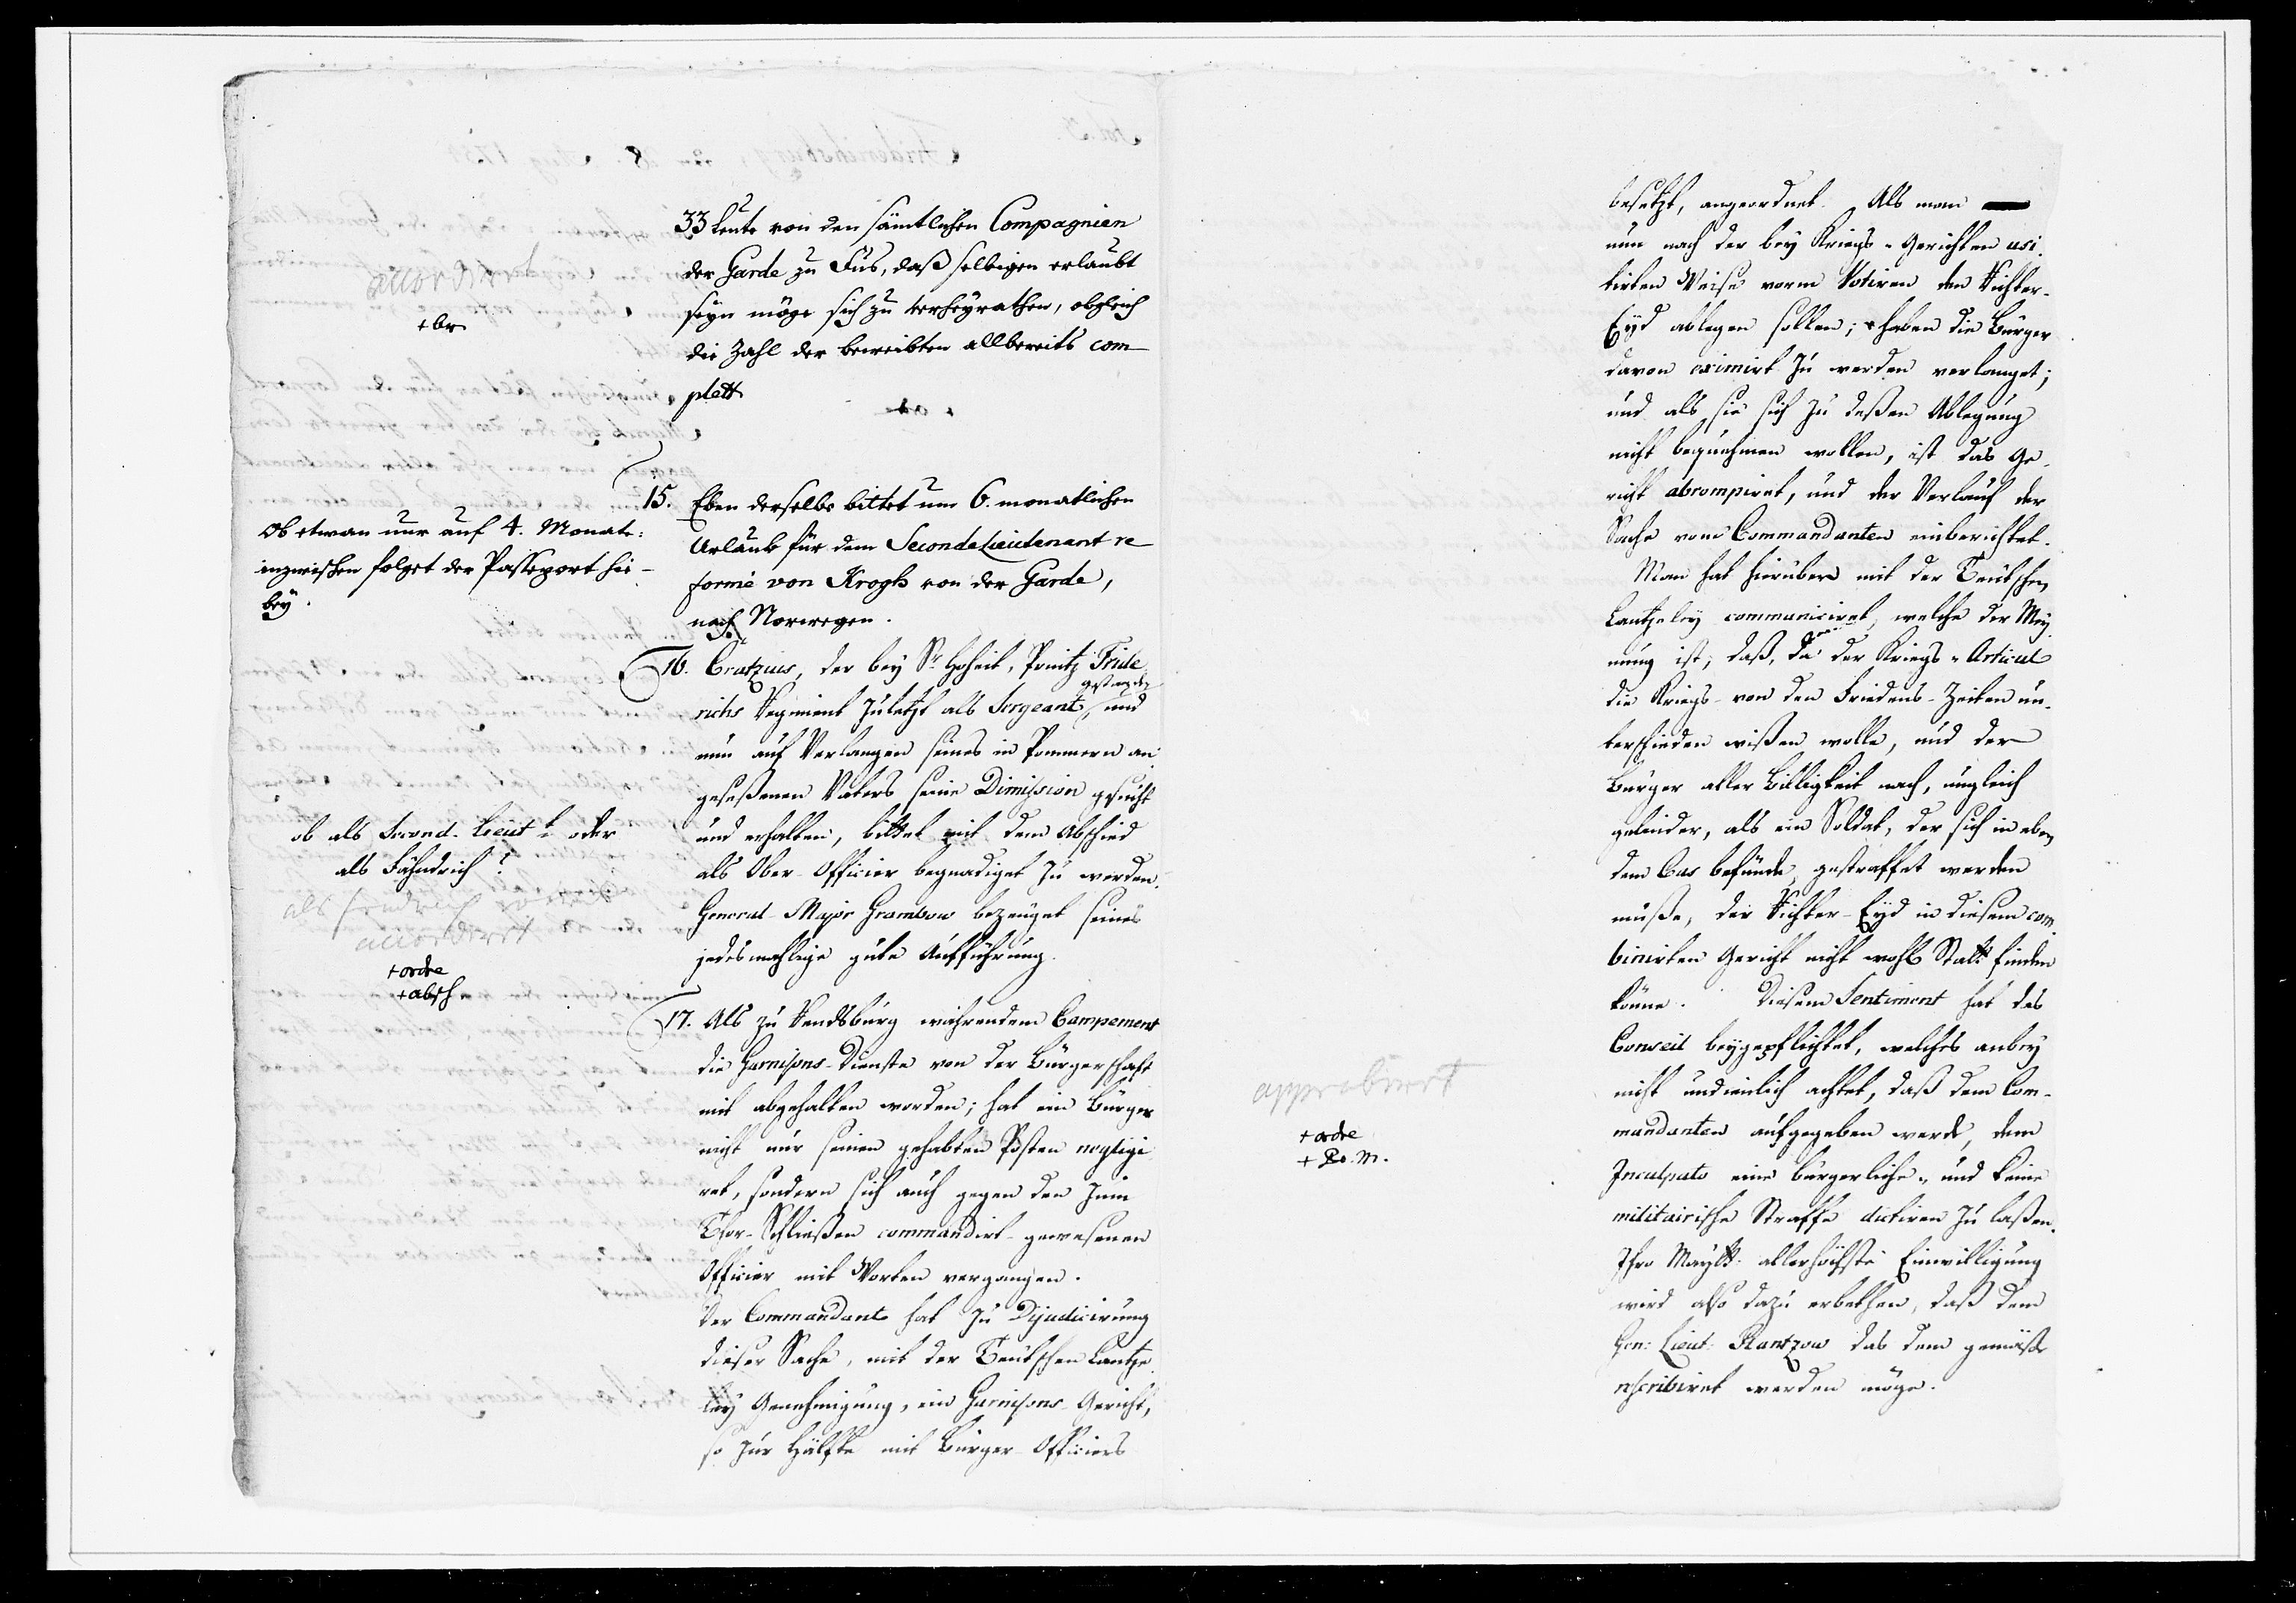 33 Leute von den sämtlichen Compagnien
der Garde zu Fus, daß selbigen erlaubt
seyn möge sich zu verheyrathen, obgleich
die Zahl der beweibten allbereits com-
plett
accordirt
+ br
15. Eben derselbe bittet um 6. monatlichen
Urlaub für dem SecondeLieutenant re-
formé von Krogh von der Garde,
nach Norwegen.
Ob etwan nur auf 4. Monate:
inzwischen folget der Passeport hie-
bey.
16. Cratzius, der bey Sr Hoheit, Printz Fride
richs Regiment zuletzt als Sergeant gestanden, und
nun auf Verlangen seines in Pommern an
geseßenen Vaters seine Dimission gesucht
und erhalten, bittet mit dem Abschied
als Ober-Officier begnadiget zu werden.
General-Major Grambow bezeuget seines
jedesmahlige gute Aufführung.
ob als Second-Lieutt oder
als Fähndrich?
als fendrich
accorderet
+ ordre
+ absch.
17. Als zu Rendsburg währendem Campement
die Garnisons-Dienste von der Bürgerschaft
mit abgehalten worden; hat ein Bürger
nicht nur seinen gehabten Posten negligi
ret, sondern sich auch gegen den zum
Thor-Schließen commandirt-gewesenen
Officier mit Worten vergangen.
Der Commandant hat zu Dijudicirung
dieser Sache, mit der Teutschen Cantze
ley Genehmigung, ein Garnisons-Gericht,
so zur Hälfte mit Bürger-Officiers
besetzt, angeordnet. Als man
nun nach der bey Kriegs-Gerichten usi
tirten Weise vorm Votiren den Richter-
Eyd ablegen sollen; haben die Bürger
davon eximirt zu werden verlanget;
und als sie sich zu deßen Ablegung
nicht bequehmen wollen, ist das Ge-
richt abrompiret, und der Verlauf der
Sache vom Commandanten einberichtet.
Man hat hierüber mit der Teutschen
Cantzeley communiciret, welche der Mey
nung ist, daß, da der Kriegs-Articul
die Kriegs- von den Friedens-Zeiten un-
terschieden wißen wolle, und der
Bürger aller Billigkeit nach, ungleich
gelinder, als ein Soldat, der sich in eben
dem Cas befünde, gestraffet werden
müße, der Richter-Eyd in diesem com
binirten Gericht nicht wohl Statt finden
könne. Diesem Sentiment hat das
Conseil beygepflichtet, welches anbey
nicht undienlich achtet, daß dem Com-
mandanten aufgegeben werde, dem
Inculpato eine bürgerliche, und keine
militairische Straffe dictiren zu laßen.
Ihro Maytt. allerhöchste Einwilligung
wird also dazu erbethen, daß dem
Gen: Lieut: Rantzow das dem gemäße
rescribiret werden möge.
approbiert
+ ordre
+ Pro M.